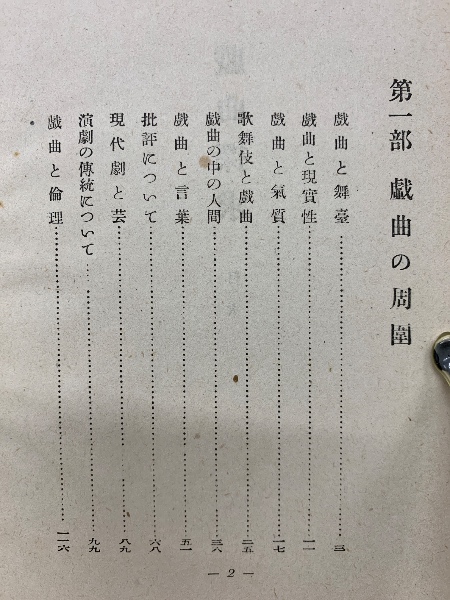 第一部 戯曲の周圍
戯曲と舞臺……三
戯曲と現實性……一一
戯曲と氣質……一七
歌舞伎と戯曲……二五
戯曲の中の人間……三八
戯曲と言葉……五一
批評について……六八
現代劇と芸……八九
演劇の傳統について……九九
戯曲と倫理……一一六
— 2 —